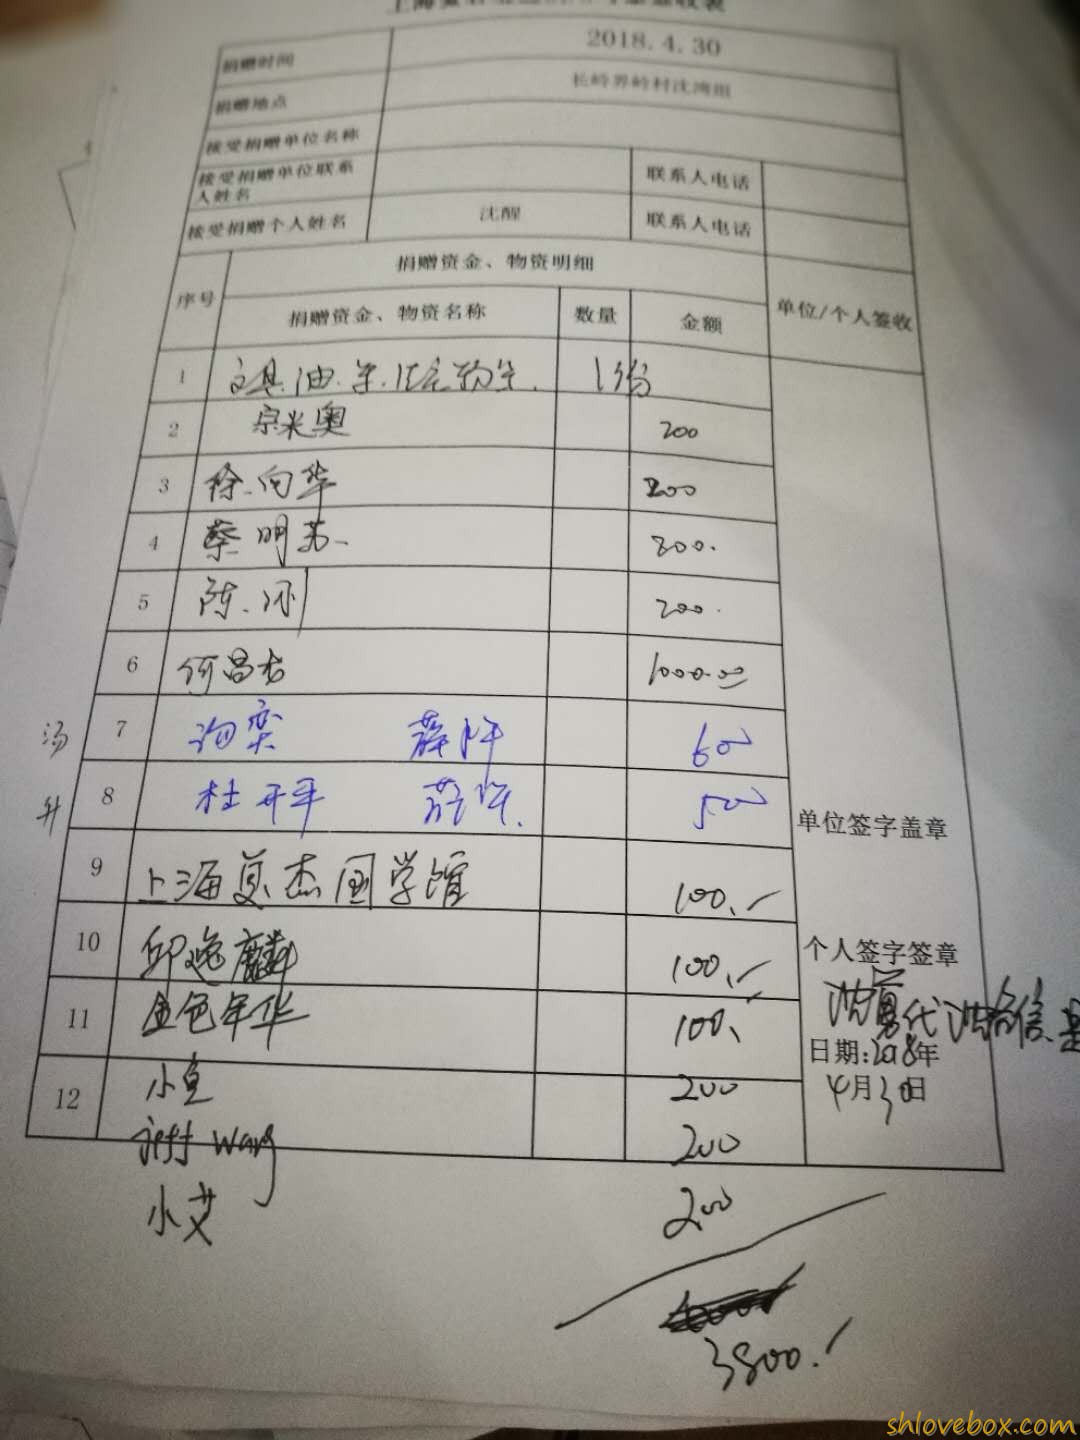 捐赠时间 2018.4.30
捐赠地点 长岭界岭村沈湾组
接受捐赠单位名称
接受捐赠单位联系人姓名 联系人电话
接受捐赠个人姓名 沈醒 联系人电话
序号 捐赠资金、物资明细 单位/个人签收
捐赠资金、物资名称 数量 金额
1 文具.油.米. 1份
2 宗米奥 200
3 徐向华 200
4 蔡明芳 200.
5 陈 200.
6 何昌 1000.00
汤 7 600
升 8 杜开平 500
单位签字盖章
9 上海复杰国学馆 100.
10 邱逸麟 100.
个人签字签章
11 金色年华 100.
代
日期:2018年
4月30日
12 小鱼 200
jeff Wang 200
小艾 200
3800.
shlovebox.com